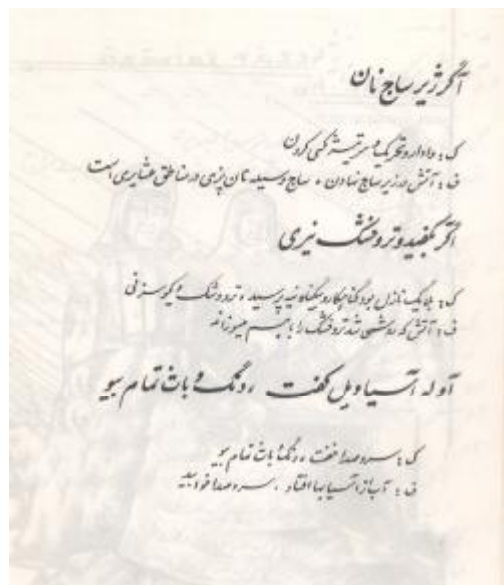 آگر ژیر ساج نان
ک: وادار و تحریک و سر تیژ کسی کردن
ف: آتش در زیر ساج نهادن ، ساج وسیله نان پزی در مناطق عشایری است
آگر بکفید و تر و خشک نیری
ک: بلا یک نازل بود گناهکار و بیگناه نیه پرسید ، تر و وشک و کو سزنی
ف: آتش که روشن شد تر و خشک را باهم میسوزاند
آو له آسیاو یل کفت ، رنگ و بات تمام بیو
ک: سر و صدا خفت ، رنگ و بات تمام بیو
ف: آب از آسیابها افتاد ، سر و صدا خوابید